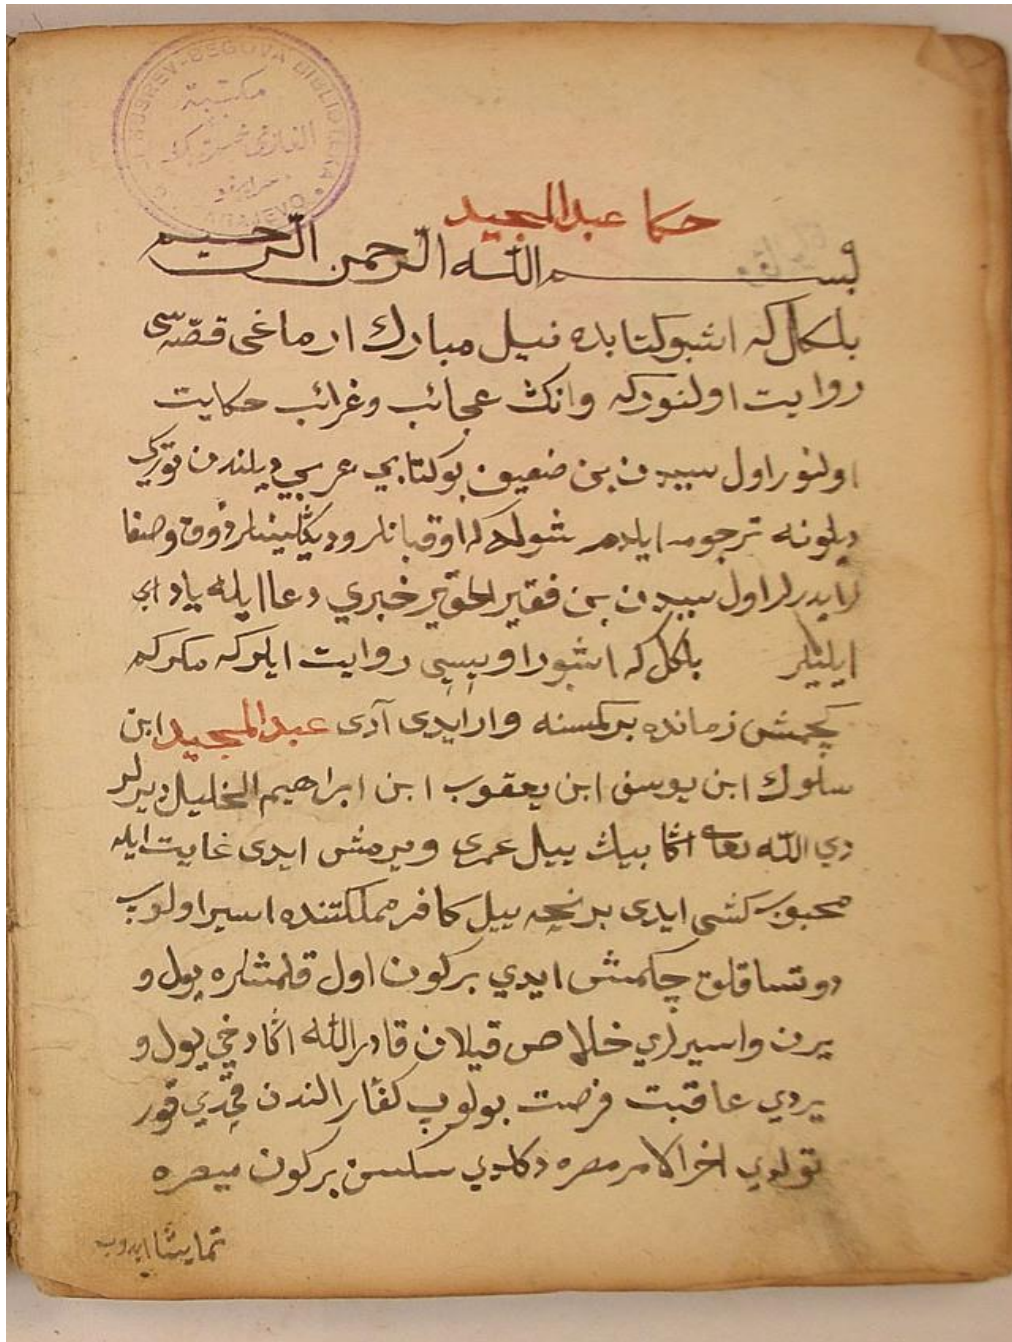 GAZI HUSREV-BEGOVA BIBLIOTEKA
مكتبة
الغازى خسرو بك
سرايفو
SARAJEVO
حكا عبدالمجيد
بسم الله الرحمن الرحيم
بلكل كه اشبو كتابده نيل مبارك ارماغى قصّه سى
روايت اولنور كه وانك عجائب وغرائب حكايت
اولنور اول سببدن بن ضعيف بو كتابي عربي ديلندن تورك
ديلونه ترجومه ايلدم شولكه اوقيانلر وديكلينلر ذوق وصفا
ايدرلر اول سببدن بن فقير الحقير خبري دعا ايله ياد اى
ايليلر بلكل كه اشبو راويسي روايت ايلر كه مكركم
كچمش زمانده بر كمسنه وار ايدى آدى عبدالمجيد ابن
سلوك ابن يوسف ابن يعقوب ابن ابراهيم الخليل ديرلر
دي الله تعالى اكا بيك ييل عمرى ويرمش ايدى غايت ايله
محبوب كشى ايدى بر نچه ييل كافر مملكتنده اسير اولوب
دوتساقلق چكمش ايدي بر كون اول قلمشلره يول و
يرن واسيرلري خلاص قيلان قادر الله اكا دخي يول و
يردي عاقبت فرصت بولوب كفّار الندن قچدي قور
تولدي اخر الامر مصره دكلدي سكسن بر كون ميصره
تماشا ايدوب